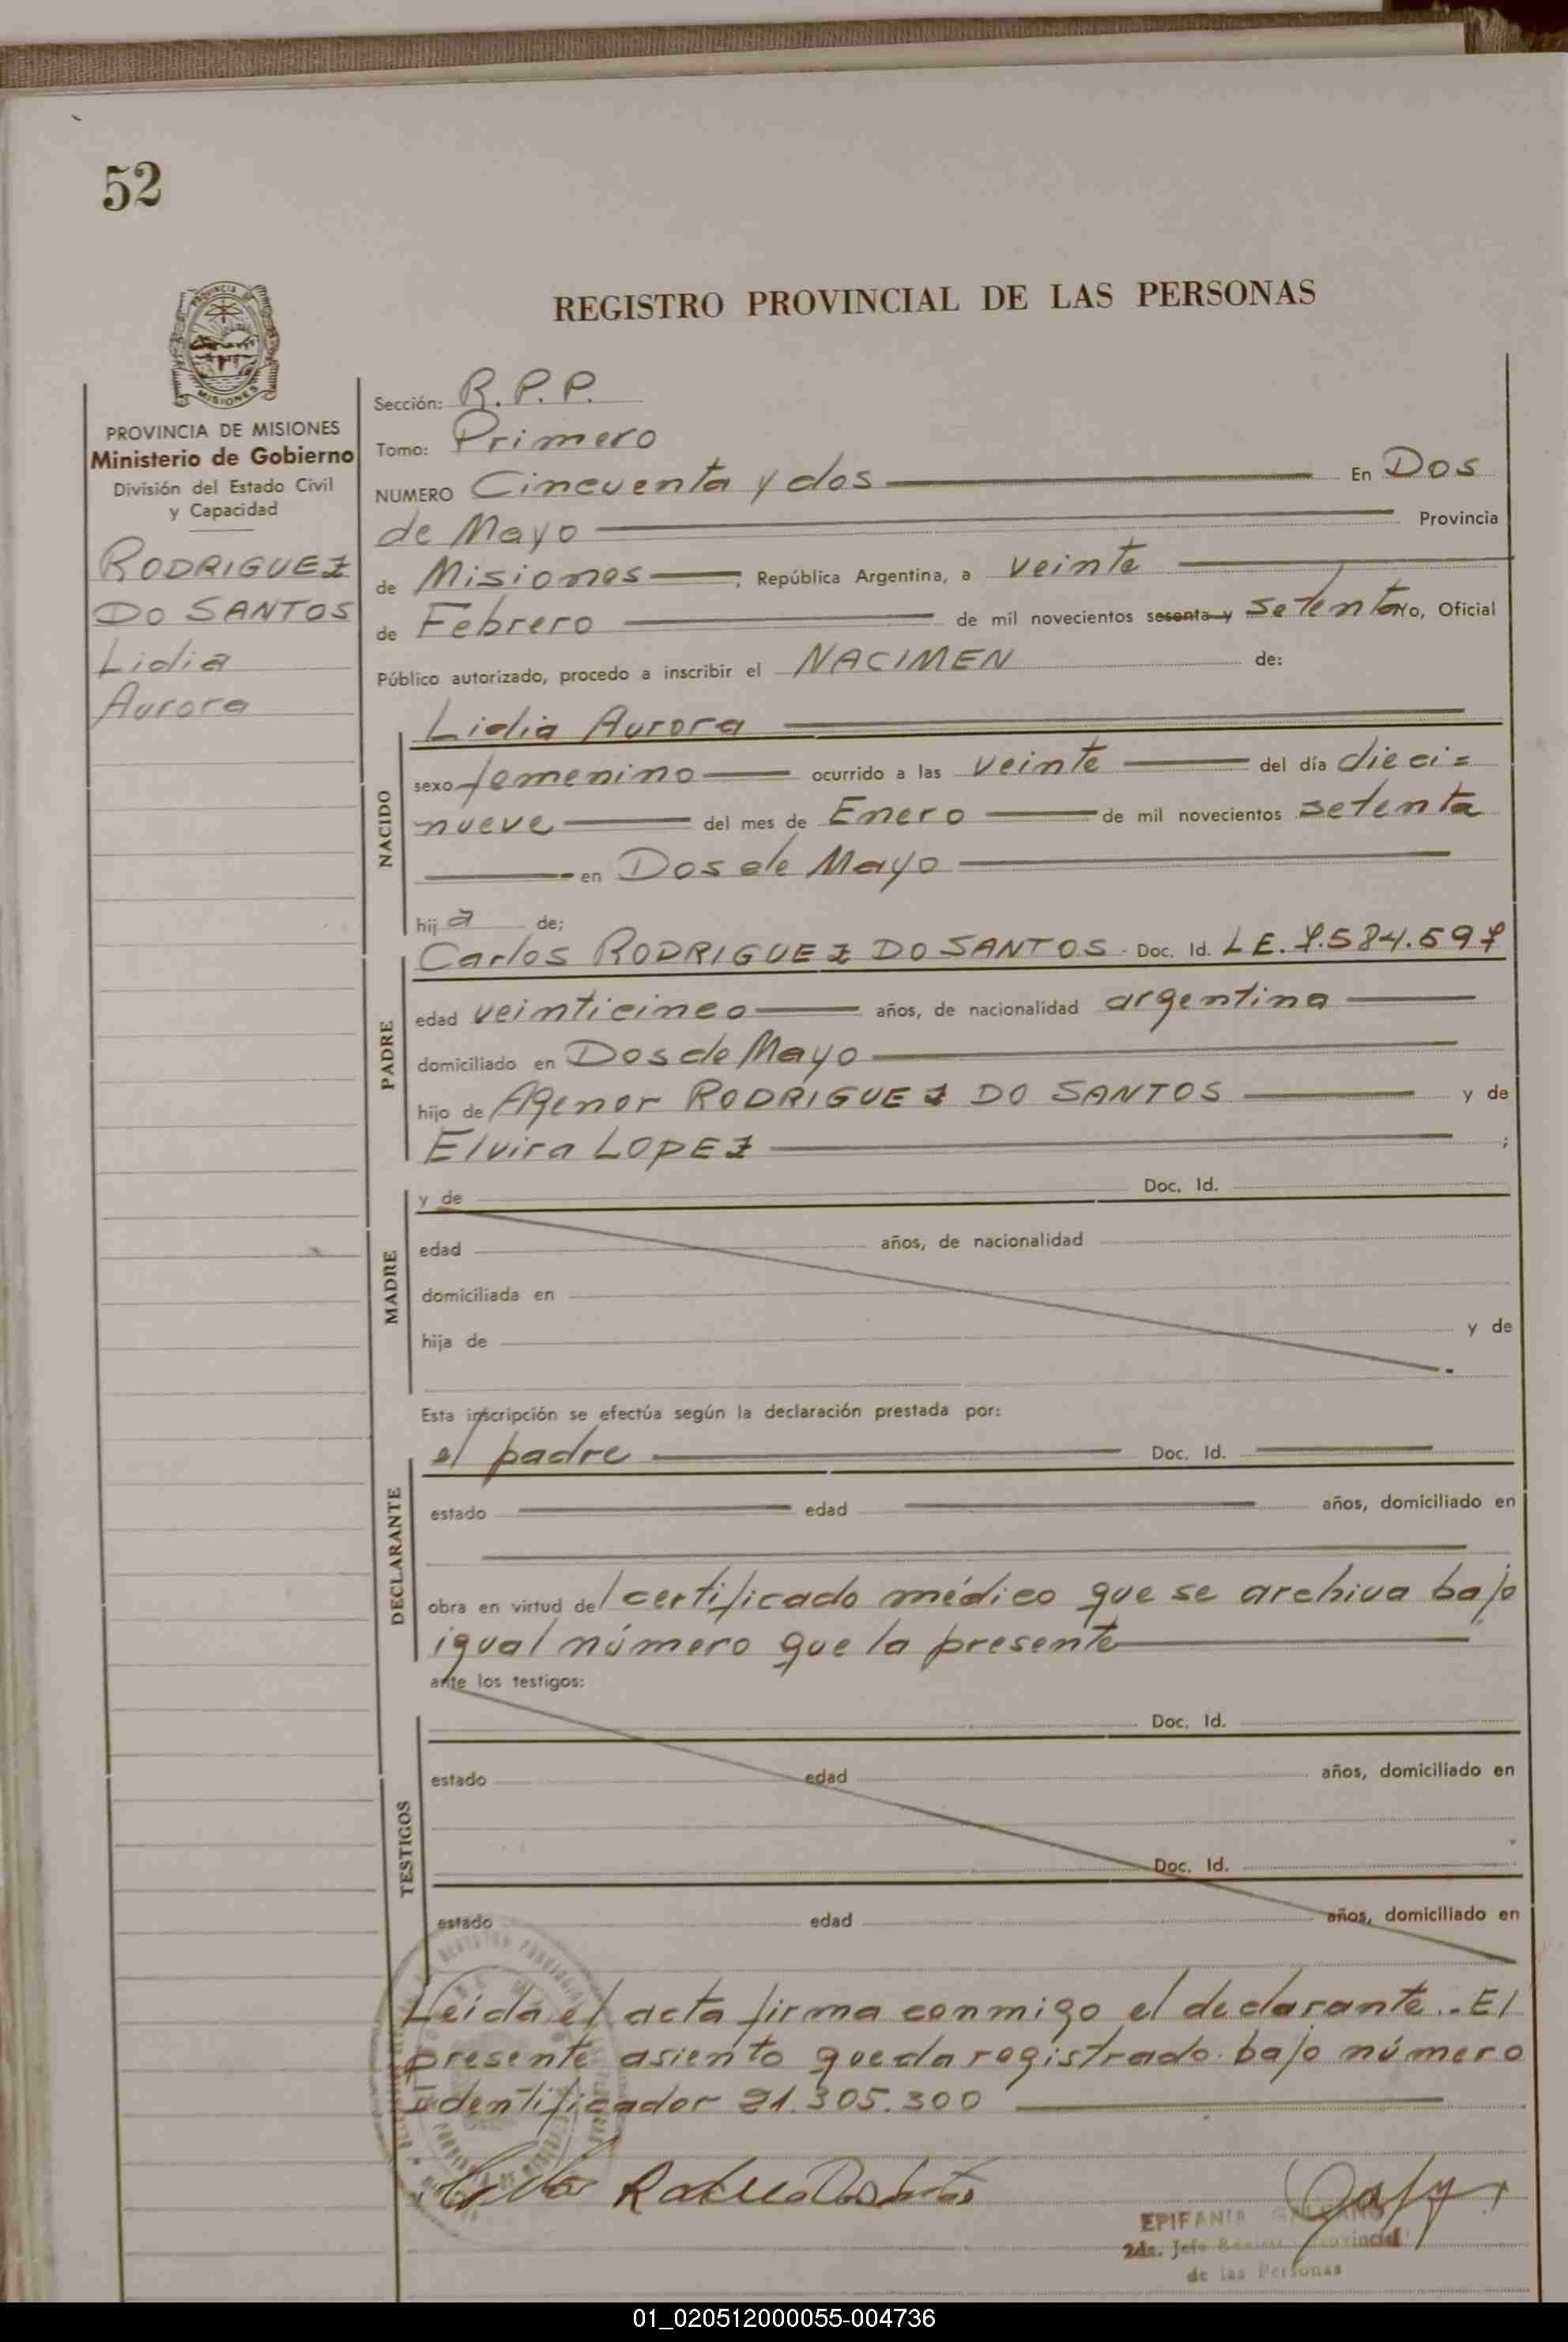 52
REGISTRO PROVINCIAL DE LAS PERSONAS
PROVINCIA DE MISIONES
Ministerio de Gobierno
División del Estado Civil
y Capacidad
RODRIGUEZ
DO SANTOS
Lidia
Aurora
Sección: R.P.P.
Tomo: Primero
NUMERO Cincuenta y dos En Dos
de Mayo Provincia
de Misiones, República Argentina, a veinte
de Febrero de mil novecientos sesenta y setenta Yo, Oficial
Público autorizado, procedo a inscribir el NACIMEN de:
NACIDO
Lidia Aurora
sexo femenino ocurrido a las veinte del día dieci=
nueve del mes de Enero de mil novecientos setenta
en Dos de Mayo
hija de:
PADRE
Carlos RODRIGUEZ DO SANTOS Doc. Id. L E. 7.584.597
edad veinticinco años, de nacionalidad argentina
domiciliado en Dos de Mayo
hijo de Agenor RODRIGUEZ DO SANTOS y de
Elvira LOPEZ ;
MADRE
y de Doc. Id.
edad años, de nacionalidad
domiciliada en
hija de y de
Esta inscripción se efectúa según la declaración prestada por:
DECLARANTE
el padre Doc. Id.
estado edad años, domiciliado en
obra en virtud del certificado médico que se archiva bajo
igual número que la presente
ante los testigos:
TESTIGOS
Doc. Id.
estado edad años, domiciliado en
Doc. Id.
estado edad años, domiciliado en
Leida el acta firma conmigo el declarante.. El
presente asiento queda registrado bajo número
identificador 21.305.300
EPIFANIA
2da. Jefe Provincial
de las Personas
01_020512000055-004736